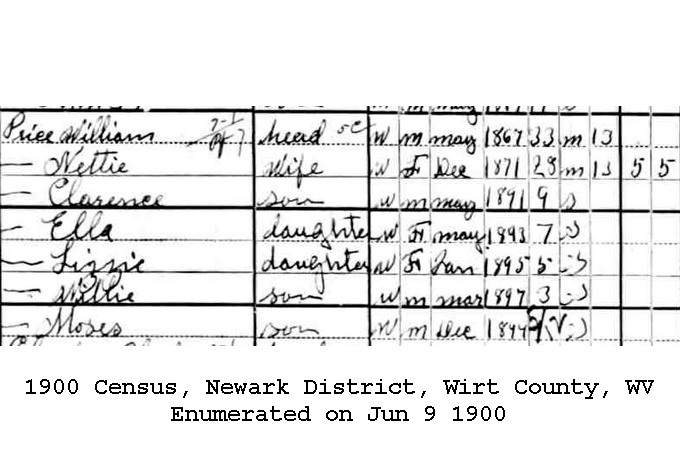 Price William head W m may 1867 33 m 13
— Nettie Wife W F Dec 1871 28 m 13 5 5
— Clarence son W m may 1891 9 S
— Ella daughter W F may 1893 7 S
— Lizzie daughter W F Jan 1895 5 S
— Willie son W m mar 1897 3 S
— Moses son W m Dec S
1900 Census, Newark District, Wirt County, WV
Enumerated on Jun 9 1900